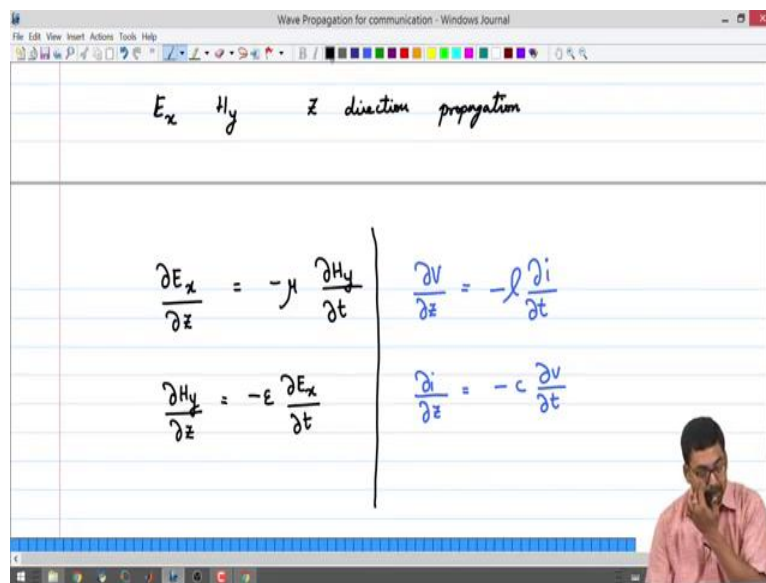 Wave Propagation for communication - Windows Journal
File Edit View Insert Actions Tools Help
B I
Eₓ H_y z direction propagation
∂Eₓ/∂z = -μ ∂H_y/∂t
∂V/∂z = -l ∂i/∂t
∂H_y/∂z = -ε ∂Eₓ/∂t
∂i/∂z = -c ∂v/∂t